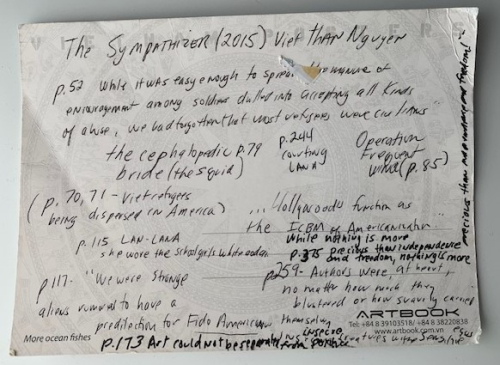 The SYMPATHIZER (2015) Viet THAN Nguyen
p.52 While it was easy enough to spread the manure of
encouragement among soldiers dulled into accepting all kinds
of abuse, we had forgotten that most were civilians"
the cephalopedic p.79
bride (the squid)
p.244
courting
LANA
Operation
Frequent
Wind (p.85)
(p. 70, 71 - Viet refugees
being dispersed in America)
... Hollywood's function as
the ICBM of Americanization"
p. 115 LAN-LANA
she wore the schoolgirl's white
while nothing is more
p.375 precious than independence
and freedom, nothing is more
precious than independence and freedom!"
p117- "We were strange
aliens rumored to have a
predilection for Fido Americanus
p259- Authors were, at heart,
no matter how much they
blustered or how suavely carried
themselves, insecure creatures with sensitive egos
p.173 Art could not be separated from politics
More ocean fishes
ARTBOOK
Tel: +84 8 39103518/ +84 8 38220838
www.artbook.com.vn